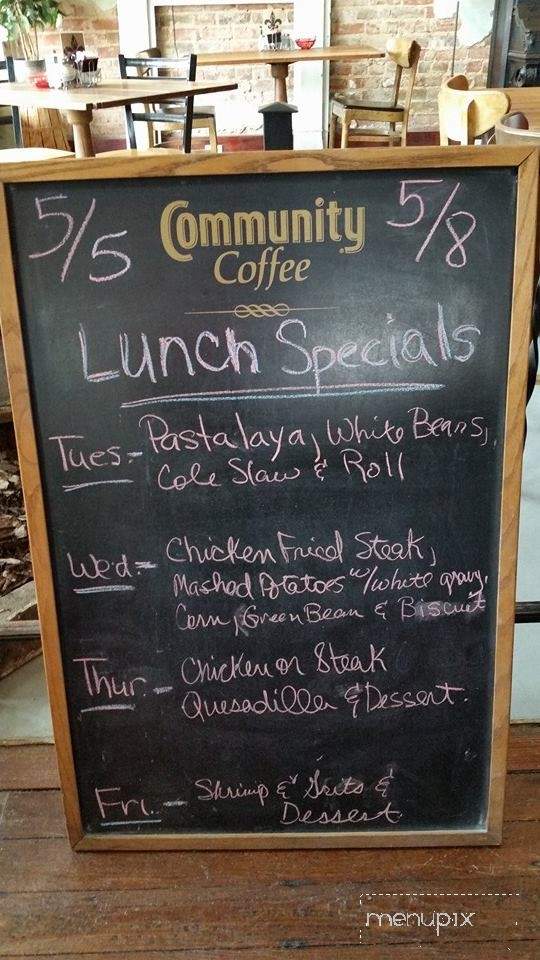 5/5 Community 5/8
Coffee
Lunch Specials
Tues.- Pastalaya, White Beans,
Cole Slaw & Roll
Wed.- Chicken Fried Steak,
Mashed Potatoes w/white gravy,
Corn, Green Bean & Biscuit
Thur.- Chicken or Steak
Quesadilla & Dessert.
Fri.- Shrimp & Grits &
Dessert.
menupix